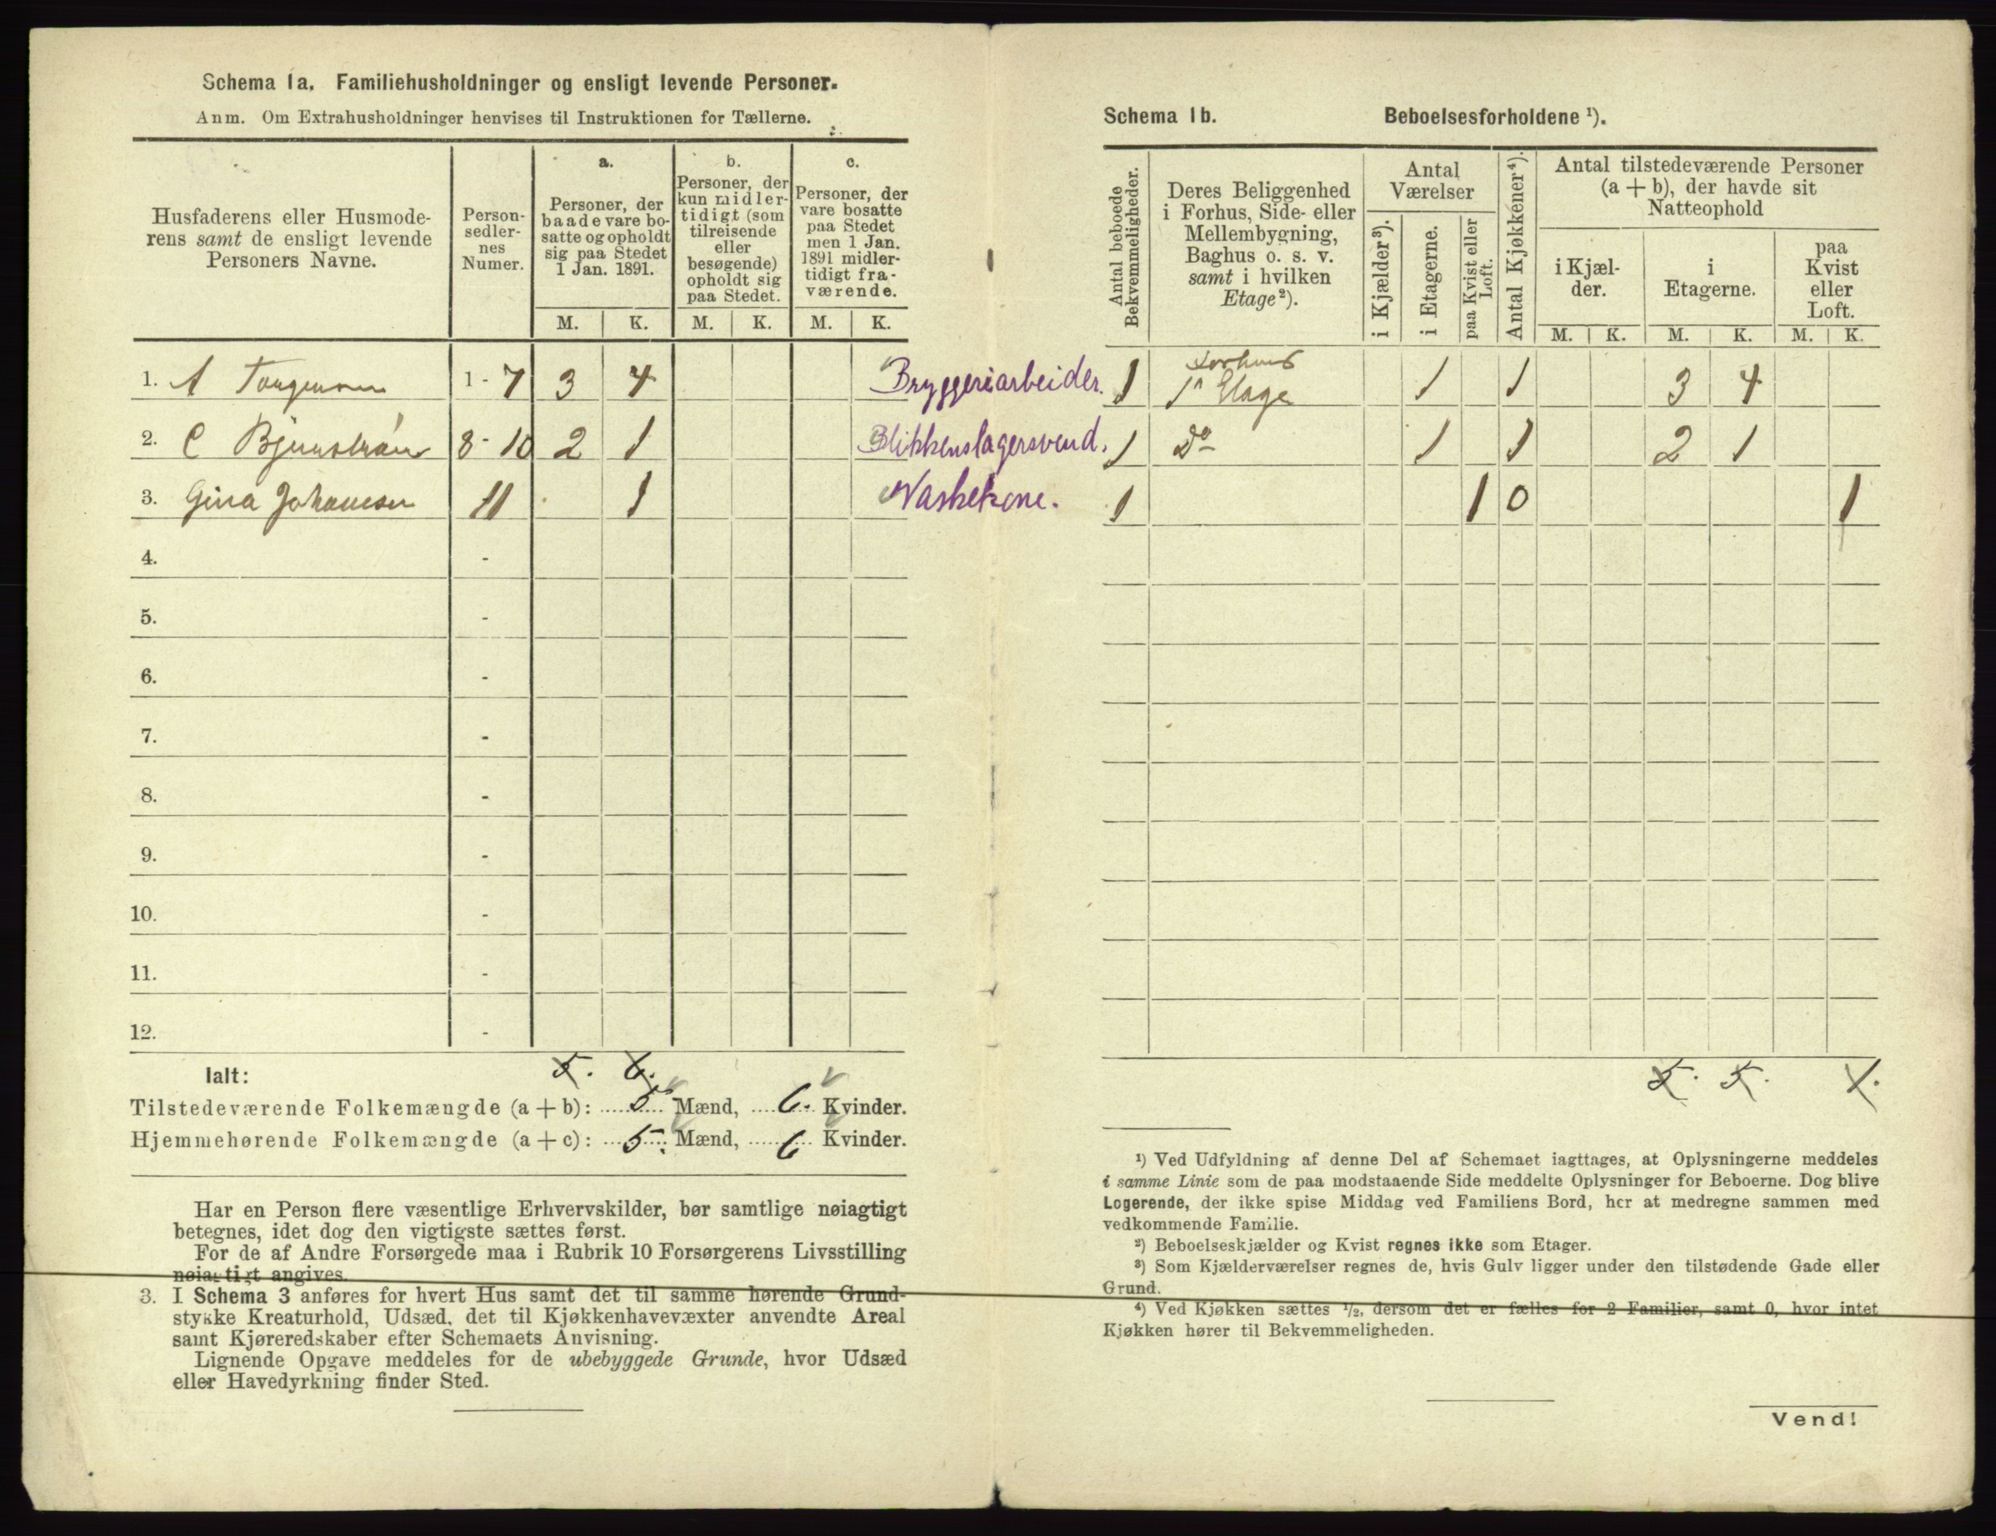 Schema 1a. Familiehusholdninger og ensligt levende Personer.
Anm. Om Extrahusholdninger henvises til Instruktionen for Tællerne.
Husfaderens eller Husmode-
rens samt de ensligt levende
Personers Navne.
Person-
sedler-
nes
Numer.
a.
Personer, der
baade vare bo-
satte og opholdt
sig paa Stedet
1 Jan. 1891.
b.
Personer, der
kun midler-
tidigt (som
tilreisende
eller
besøgende)
opholdt sig
paa Stedet.
c.
Personer, der
vare bosatte
paa Stedet
men 1 Jan.
1891 midler-
tidigt fra-
værende.
M. K. M. K. M. K.
1. A 1 - 7 3 4 Bryggeriarbeider.
2. C 8 - 10 2 1 Blikkenslagersvend.
3. Gina Johannesen 11 1 Vaskekone.
4. -
5. -
6. -
7. -
8. -
9. -
10. -
11. -
12. -
Ialt: 5. 6.
Tilstedeværende Folkemængde (a + b): 5 Mænd, 6. Kvinder.
Hjemmehørende Folkemængde (a + c): 5. Mænd, 6 Kvinder.
Har en Person flere væsentlige Erhvervskilder, bør samtlige nøiagtigt
betegnes, idet dog den vigtigste sættes først.
For de af Andre Forsørgede maa i Rubrik 10 Forsørgerens Livsstilling
nøiagtigt angives.
3. I Schema 3 anføres for hvert Hus samt det til samme hørende Grund-
stykke Kreaturhold, Udsæd, det til Kjøkkenhavevæxter anvendte Areal
samt Kjøreredskaber efter Schemaets Anvisning.
Lignende Opgave meddeles for de ubebyggede Grunde, hvor Udsæd
eller Havedyrkning finder Sted.
Schema 1b. Beboelsesforholdene ¹).
Antal beboede
Bekvemmeligheder.
Deres Beliggenhed
i Forhus, Side- eller
Mellembygning,
Baghus o. s. v.
samt i hvilken
Etage ²).
Antal
Værelser
i Kjælder ³).
i Etagerne.
paa Kvist eller
Loft.
Antal Kjøkkener ⁴).
Antal tilstedeværende Personer
(a + b), der havde sit
Natteophold
i Kjæl-
der.
i
Etagerne.
paa
Kvist
eller
Loft.
M. K. M. K. M. K.
1 Forhus
1ª Etage 1 1 3 4
1 Dº 1 1 2 1
1 1 0 1
5. 5. 1.
¹) Ved Udfyldning af denne Del af Schemaet iagttages, at Oplysningerne meddeles
i samme Linie som de paa modstaaende Side meddelte Oplysninger for Beboerne. Dog blive
Logerende, der ikke spise Middag ved Familiens Bord, her at medregne sammen med
vedkommende Familie.
²) Beboelseskjælder og Kvist regnes ikke som Etager.
³) Som Kjælderværelser regnes de, hvis Gulv ligger under den tilstødende Gade eller
Grund.
⁴) Ved Kjøkken sættes ½, dersom det er fælles for 2 Familier, samt 0, hvor intet
Kjøkken hører til Bekvemmeligheden.
Vend!